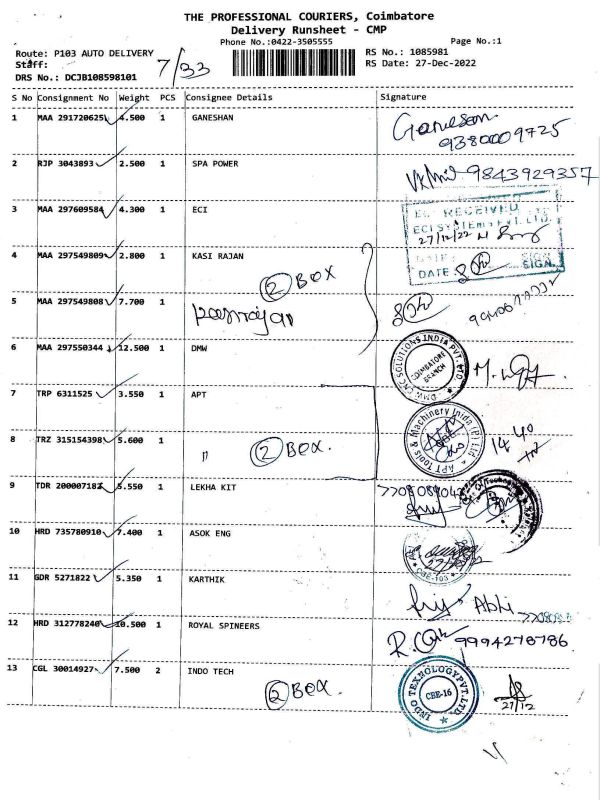 THE PROFESSIONAL COURIERS, Coimbatore
Delivery Runsheet - CMP
Phone No.:0422-3505555 Page No.:1
Route: P103 AUTO DELIVERY RS No.: 1085981
Staff: 7/33 RS Date: 27-Dec-2022
DRS No.: DCJB108598101
S No Consignment No Weight PCS Consignee Details Signature
1 MAA 291720625 4.500 1 GANESHAN Ganesan
9380009725
2 RJP 3043893 2.500 1 SPA POWER 9843929357
3 MAA 297609584 4.300 1 ECI RECEIVED
ECI SYSTEMS PVT. LTD.
27/12/22
4 MAA 297549809 2.800 1 KASI RAJAN DATE SIGN
2 BOX
5 MAA 297549808 7.700 1
6 MAA 297550344 12.500 1 DMW DMW CNC SOLUTIONS INDIA PVT. LTD. COIMBATORE BRANCH
7 TRP 6311525 3.550 1 APT APT Tools & Machinery India (P) Ltd
8 TRZ 315154398 5.600 1 " 2 BOX. 14 40
9 TDR 200007182 5.550 1 LEKHA KIT
10 HRD 735780910 7.400 1 ASOK ENG
11 GDR 5271822 5.350 1 KARTHIK
Abhi
12 HRD 312778240 10.500 1 ROYAL SPINEERS 9994278786
13 CGL 30014927 7.500 2 INDO TECH INDO TEXNOLOGY PVT. LTD. CBE-16
2 BOX. 27/12